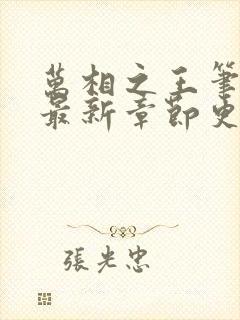 萬相之王筆
最新章節史
張光忠